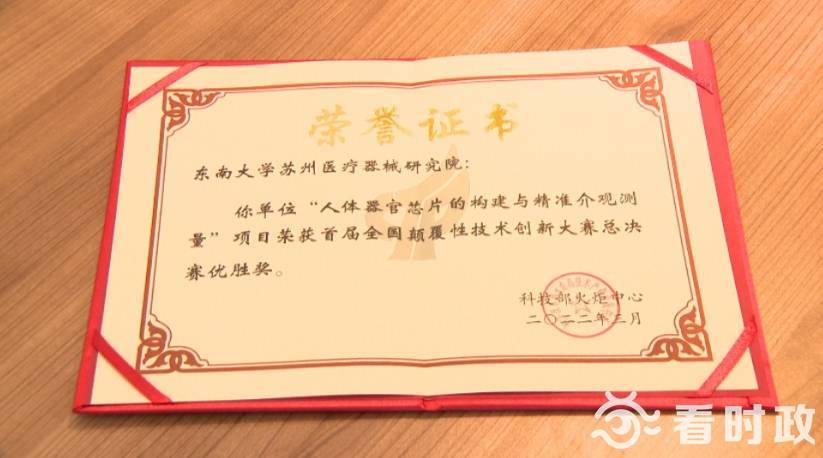 荣誉证书
东南大学苏州医疗器械研究院：
你单位“人体器官芯片的构建与精准介观测
量”项目荣获首届全国颠覆性技术创新大赛总决
赛优胜奖。
科技部火炬中心
二〇二二年三月
看时政